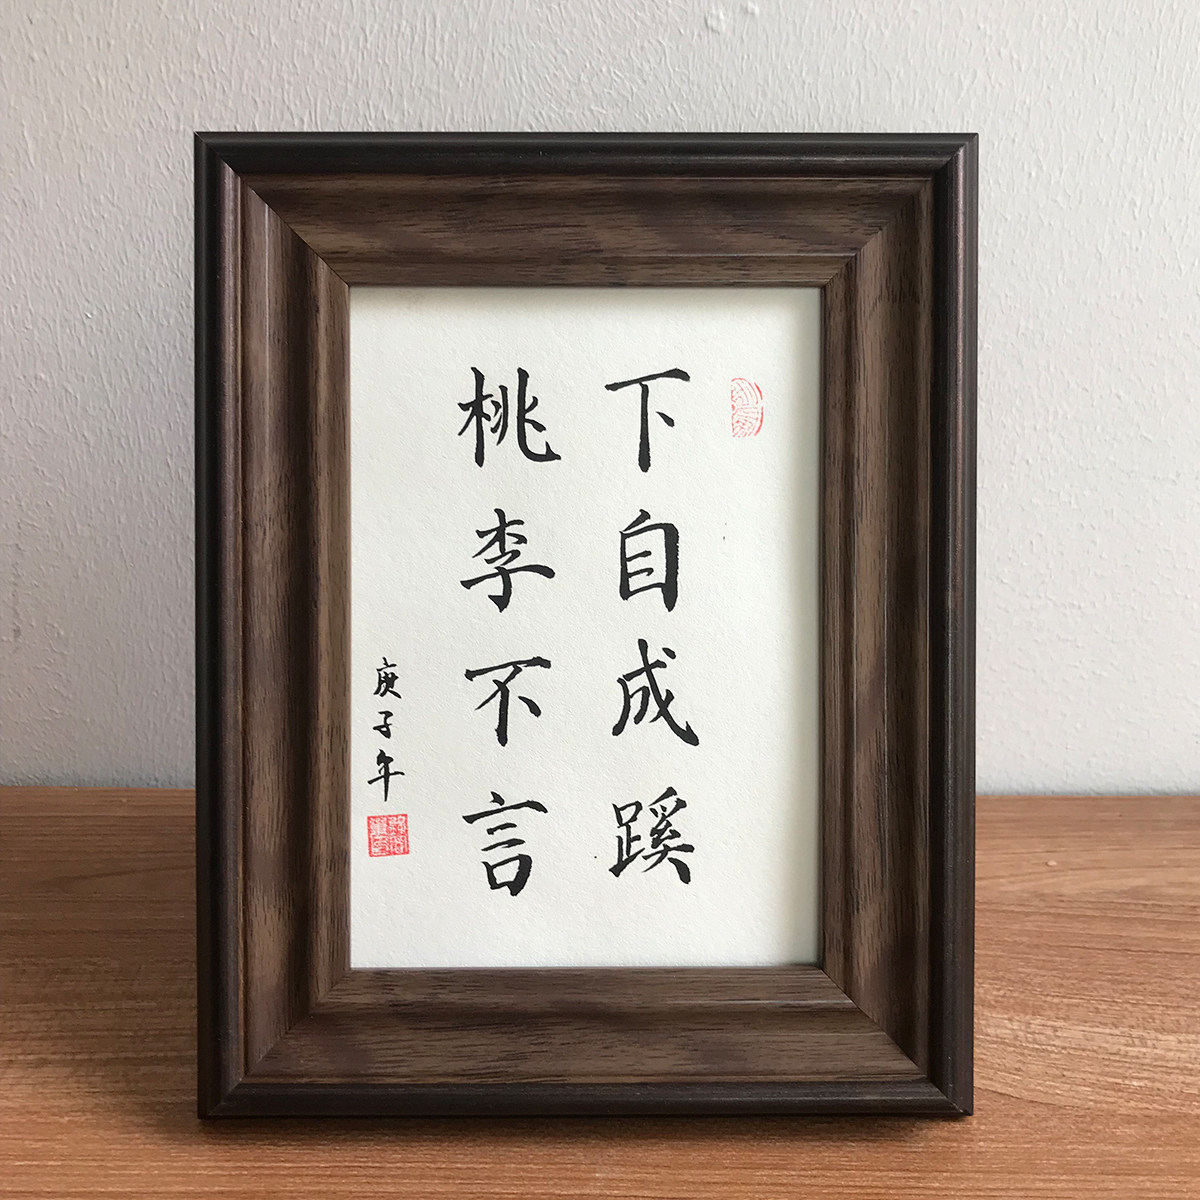 下自成蹊
桃李不言
庚子年